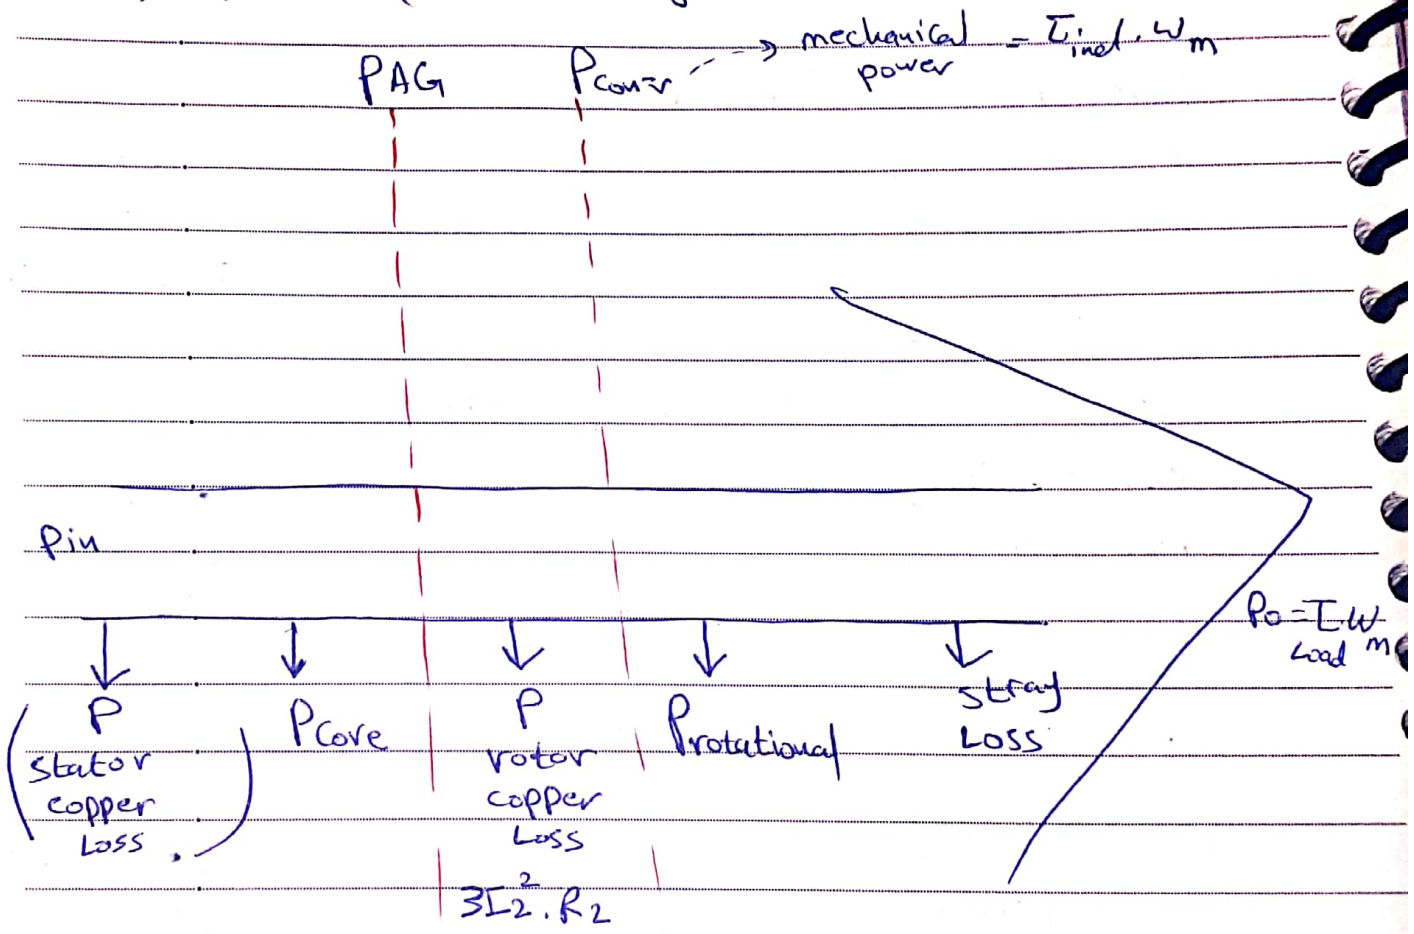 PAG Pconv --> mechanical power = τind . ωm
Pin
Po = τ Load ωm
P stator copper Loss
Pcore
P rotor copper Loss
Protational
stray Loss
3I₂² . R₂